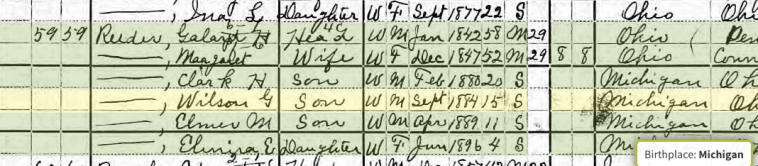 ———, L Daughter W F Sept 1877 22 S Ohio
59 59 Reeder, H Head W M Jan 1842 58 M 29 Ohio
———, Margaret Wife W F Dec 1847 52 M 29 8 8 Ohio
———, Clark H Son W M Feb 1880 20 S Michigan Oh
———, Wilson G Son W M Sept 1884 15 S Michigan Oh
———, Elmer M Son W M Apr 1889 11 S Michigan Oh
———, E Daughter W F Jun 1896 4 S
Birthplace: Michigan